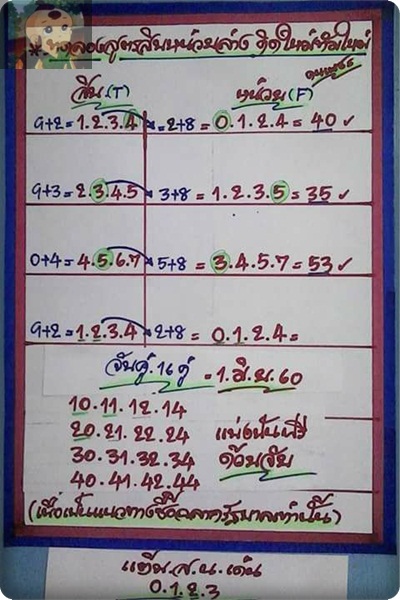 * ทดลองสูตรสิบหน่วยล่าง คิดใหม่ทำใหม่
สิบ (T) หน่วย (F)
9+2=1.2.3.4 = 2+8 = 0.1.2.4 = 40 ✓
9+3=2.3.4.5 3+8 = 1.2.3.5 = 35 ✓
0+4=4.5.6.7 5+8 = 3.4.5.7 = 53 ✓
9+2=1.2.3.4 2+8 = 0.1.2.4 =
จับคู่.16 คู่ = 1.มิ.ย.60
10.11.12.14
20.21.22.24 แบ่งปันฟรี
30.31.32.34 ด้วยจับ
40.41.42.44
(เพื่อเป็นแนวทางซื้อฉลากรัฐบาลเท่านั้น)
แย้ม.ส.น.เด่น
0.1.2.3